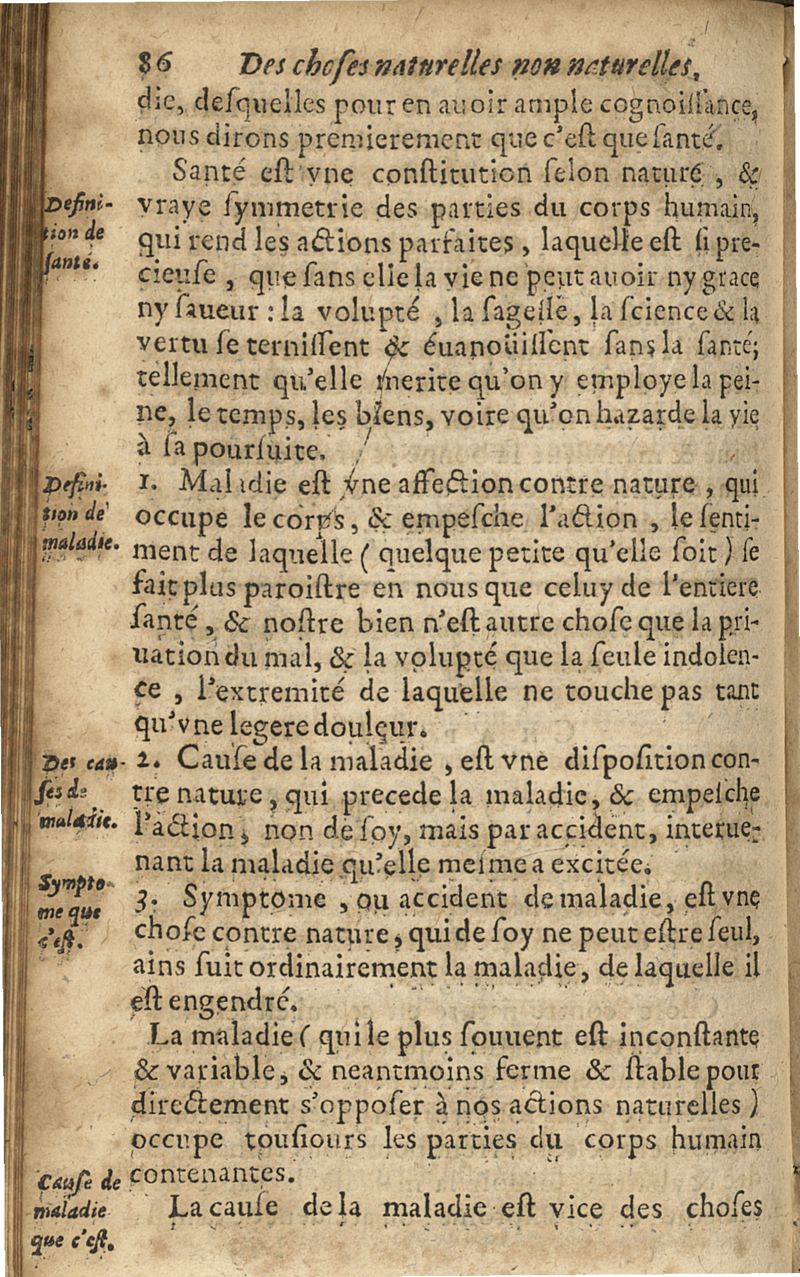 86 Des choses naturelles non naturelles.
die, desquelles pour en auoir ample cognoissance,
nous dirons premierement que c'est que santé.
Santé est vne constitution selon naturé, &
Defini-
tion de
santé.
vraye symmetrie des parties du corps humain,
qui rend les actions parfaites, laquelle est si pre-
cieuse, que sans elle la vie ne peut auoir ny grace
ny saueur : la volupté, la sagesse, la science & la
vertu se ternissent & éuanoüissent sans la santé;
tellement qu'elle merite qu'on y employe la pei-
ne, le temps, les biens, voire qu'on hazarde la vie
à sa poursuite.
Defini-
tion de
maladie.
1. Maladie est vne affection contre nature, qui
occupe le corps, & empesche l'action, le senti-
ment de laquelle ( quelque petite qu'elle soit ) se
fait plus paroistre en nous que celuy de l'entiere
santé, & nostre bien n'est autre chose que la pri-
uation du mal, & la volupté que la seule indolen-
ce, l'extremité de laquelle ne touche pas tant
qu'vne legere douleur.
Des cau-
ses de
maladie.
2. Cause de la maladie, est vne disposition con-
tre nature, qui precede la maladie, & empesche
l'action, non de soy, mais par accident, interue-
nant la maladie qu'elle mesme a excitée.
Sympto-
me que
c'est.
3. Symptome, ou accident de maladie, est vne
chose contre nature, qui de soy ne peut estre seul,
ains suit ordinairement la maladie, de laquelle il
est engendré.
La maladie ( qui le plus souuent est inconstante
& variable, & neantmoins ferme & stable pour
directement s'opposer à nos actions naturelles )
occupe tousiours les parties du corps humain
contenantes.
Cause de
maladie
que c'est.
La cause de la maladie est vice des choses